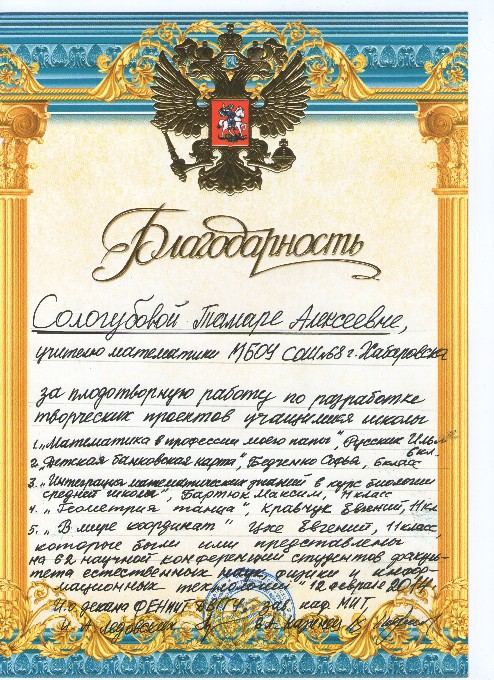 Благодарность
Сологубовой Тамаре Алексеевне,
учителю математики МБОУ СОШ №68 г. Хабаровска
за плодотворную работу по разработке
творческих проектов учащимися школы
1. „Математика в профессии моего папы", Русских Илья
6 кл.
2. „Детская банковская карта", Бедченко Софья, 6 класс
3. „Интеграция математических знаний в курс биологии
средней школы", Бартюк Максим, 11 класс
4. „Геометрия танца", Кравчук Евгений, 11 кл.
5. „В мире координат" Цхе Евгений, 11 класс,
которые были ими представлены
на 62 научной конференции студентов факуль-
тета естественных наук, физики и инфор-
мационных технологий" 12 февраля 2014
И.о. декана зав. каф. МИТ,